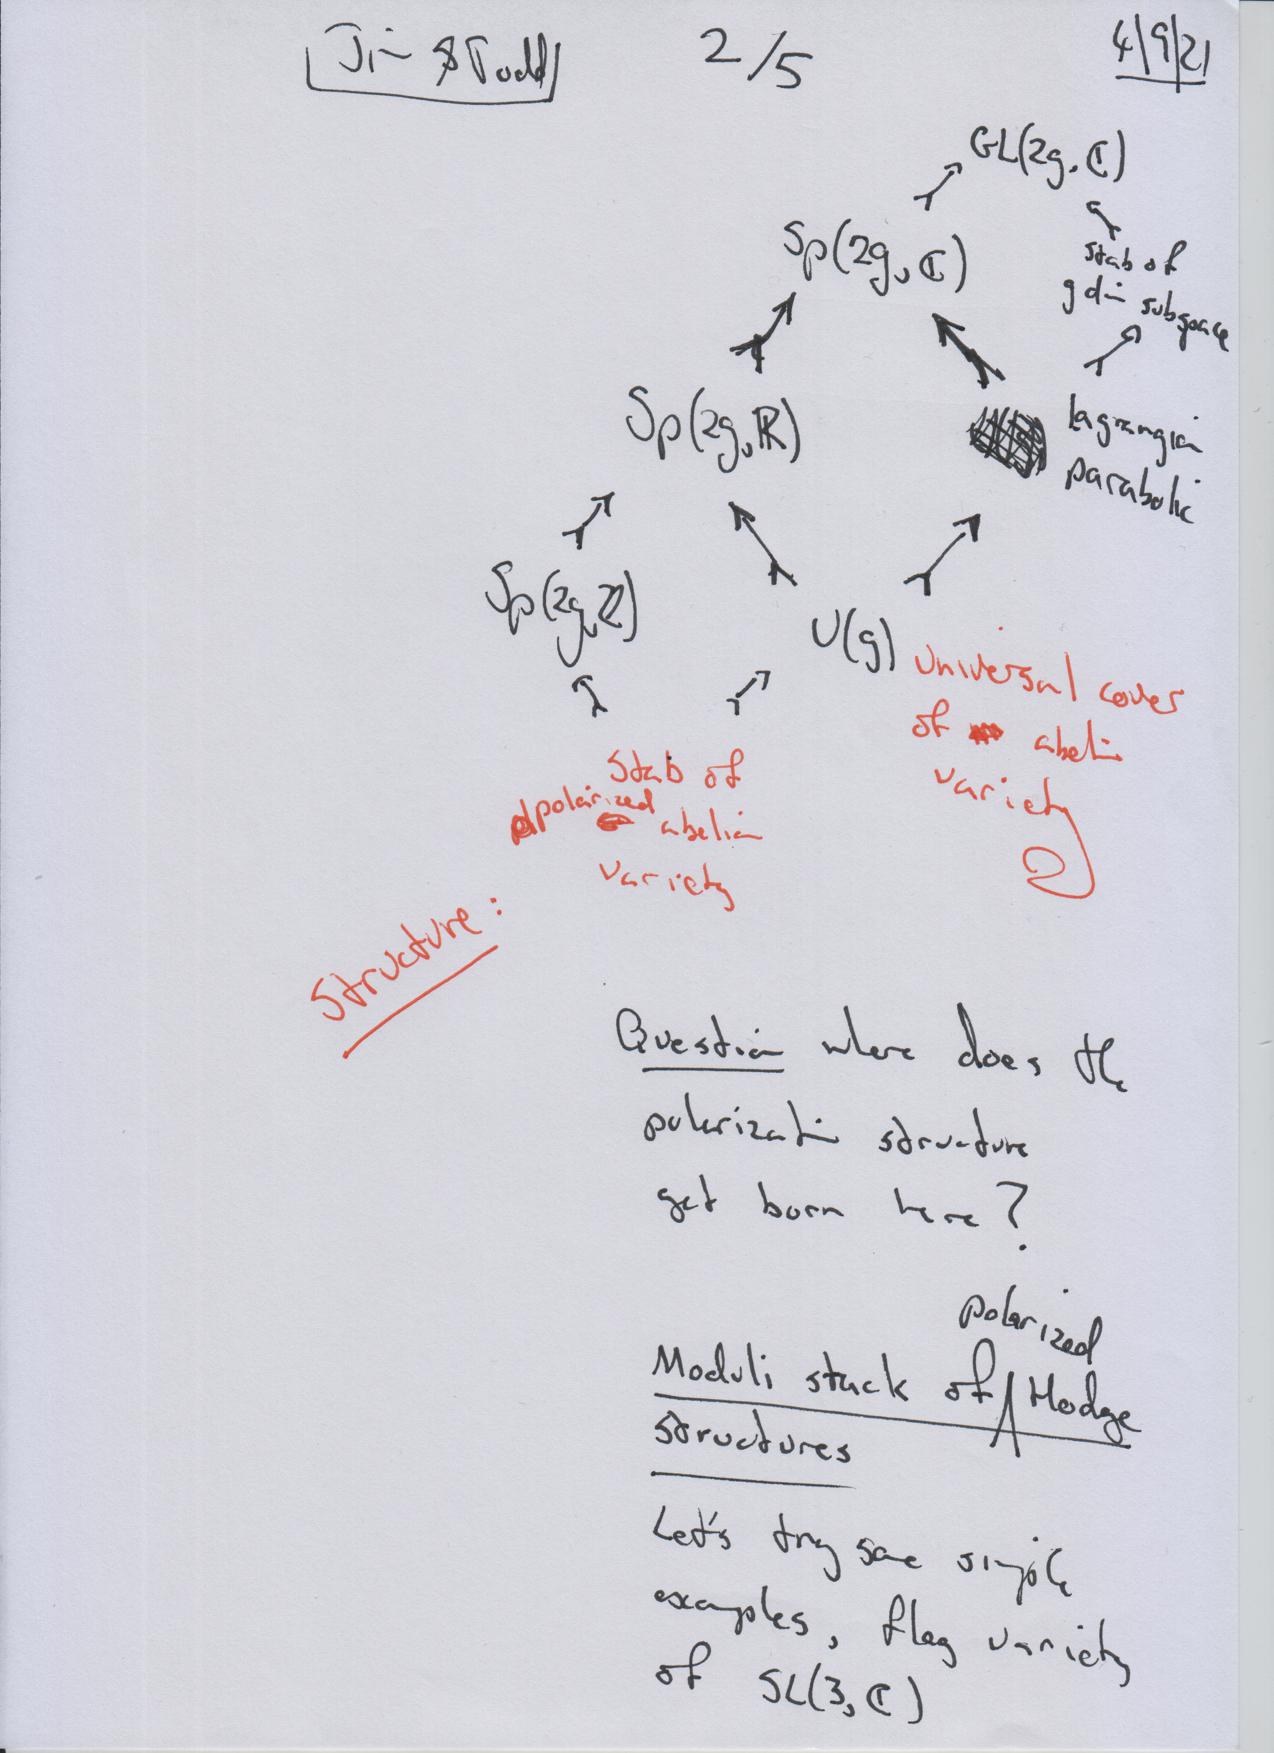 Jim & Todd 2/5 4/9/21
GL(2g, ℂ)
Sp(2g, ℂ)
stab of
g dim subspace
Sp(2g, ℝ)
Lagrangian
parabolic
Sp(2g, ℤ)
U(g)
universal cover
of abelian
variety
Stab of
polarized abelian
variety
Structure:
Question where does the
polarization structure
get born here?
polarized
Moduli stack of Hodge
structures
Let's try some simple
examples, flag variety
of SL(3, ℂ)